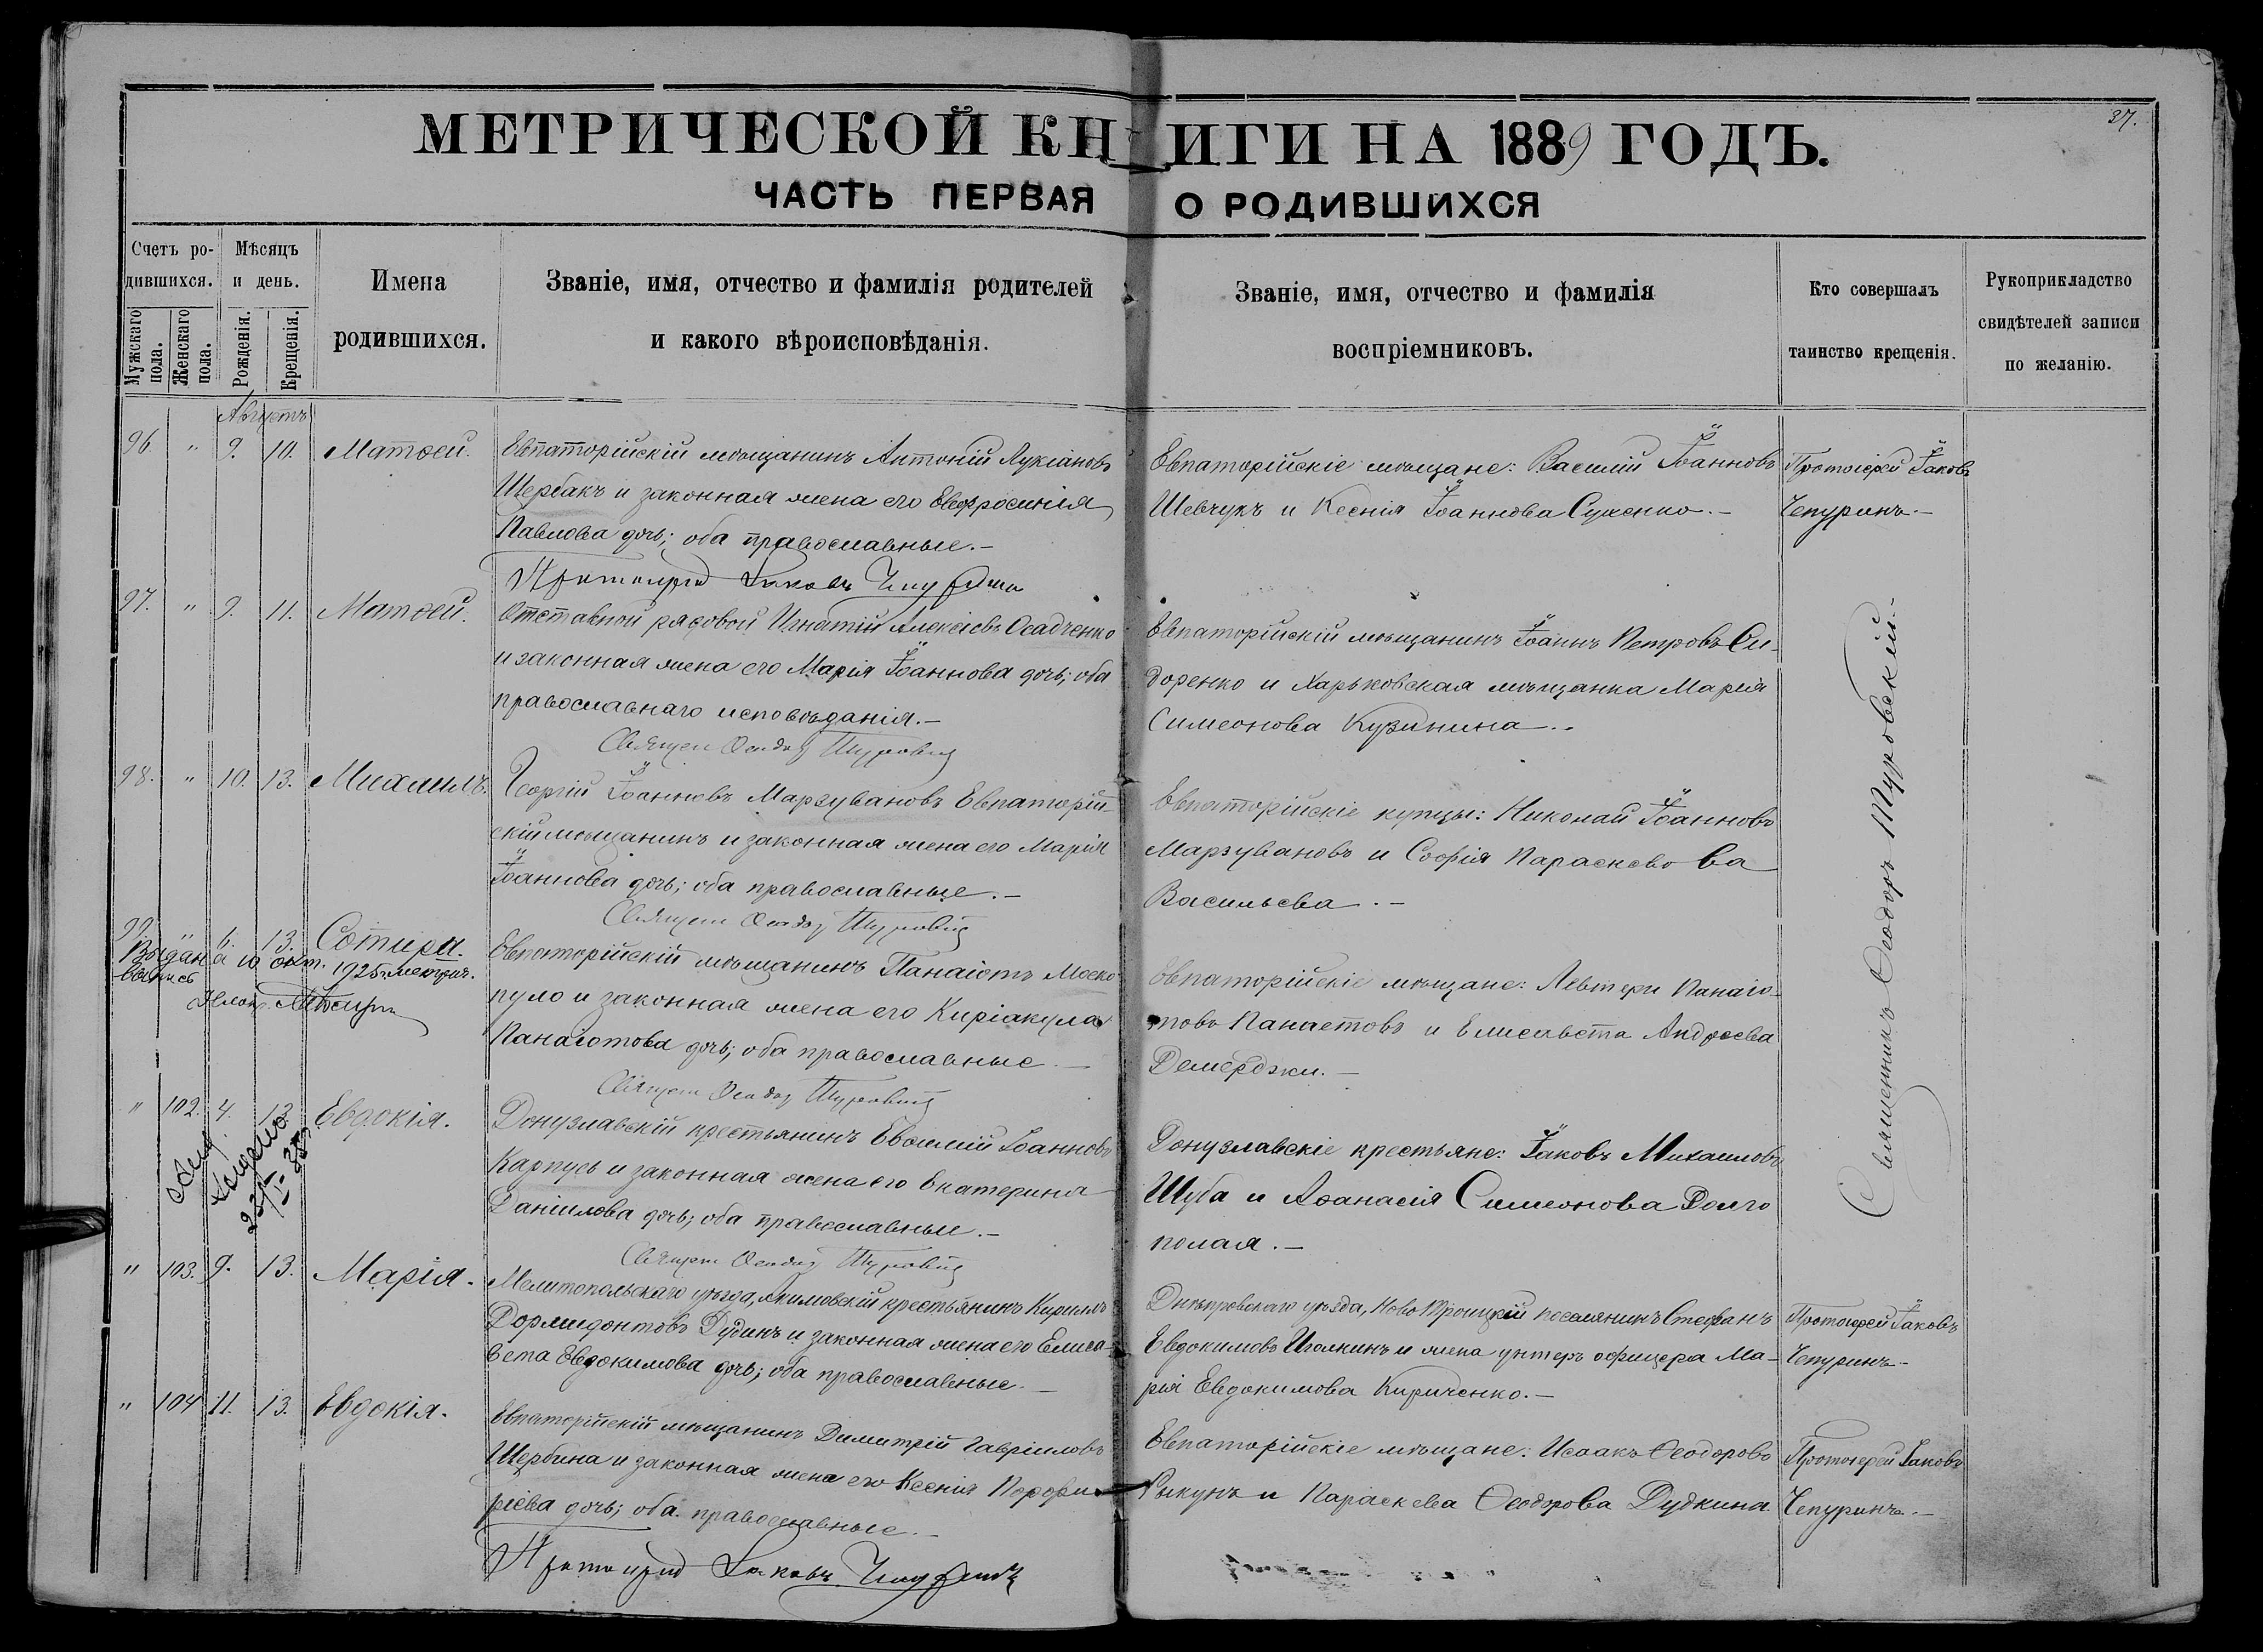 27.
МЕТРИЧЕСКОЙ КНИГИ НА 1889 ГОДЪ.
ЧАСТЬ ПЕРВАЯ О РОДИВШИХСЯ
Счетъ ро-
дившихся.
Мужскаго пола.
Женскаго пола.
Мѣсяцъ
и день.
Рожденія.
Крещенія.
Имена
родившихся.
Званіе, имя, отчество и фамилія родителей
и какого вѣроисповѣданія.
Званіе, имя, отчество и фамилія
воспріемниковъ.
Кто совершалъ
таинство крещенія.
Рукоприкладство
свидѣтелей записи
по желанію.
Августъ
96. " 9. 10. Матѳей.
Евпаторійскій мѣщанинъ Антоній Лукіановъ
Щербакъ и законная жена его Евфросинія
Павлова дочь; оба православные.-
Протоіерей Іаковъ Чепуринъ
Евпаторійскіе мѣщане: Василій Іоанновъ
Шевчукъ и Ксенія Іоаннова Сушенко.-
Протоіерей Іаковъ
Чепуринъ.-
97. " 9. 11. Матѳей.
Отставной рядовой Игнатій Алексѣевъ Осадченко
и законная жена его Марія Іоаннова дочь; оба
православнаго исповѣданія.-
Священ Ѳеодоръ Туровскій
Евпаторійскій мѣщанинъ Іоаннъ Петровъ Си-
доренко и Харьковская мѣщанка Марія
Симеонова Кузинина.-
Священникъ Ѳеодоръ Туровскій.-
98. " 10. 13. Михаилъ.
Георгій Іоанновъ Марзувановъ Евпаторій-
скій мѣщанинъ и законная жена его Марія
Іоаннова дочь; оба православные.-
Священ Ѳеодоръ Туровскій
Евпаторійскіе купцы: Николай Іоанновъ
Марзувановъ и Софія Параскевова
Васильева.-
99. " 6. 13. Сотири.
Выдана 10 окт. 1925 г. метрич.
выпись
Евпаторійскій мѣщанинъ Панаіотъ Моско-
пуло и законная жена его Киріакула
Панаіотова дочь; оба православные.-
Священ Ѳеодоръ Туровскій
Евпаторійскіе мѣщане: Левтери Панаіо-
товъ Панаетовъ и Елисавета Андреева
Демерджи.-
" 102. 4. 13. Евдокія.
Донузлавскій крестьянинъ Евѳимій Іоанновъ
Карпусь и законная жена его Екатерина
Даніилова дочь; оба православные.-
Священ Ѳеодоръ Туровскій
Донузлавскіе крестьяне: Іаковъ Михаиловъ
Шуба и Аѳанасія Симеонова Долго
полая.-
" 103. 9. 13. Марія.
Мелитопольскаго уѣзда, Акимовскій крестьянинъ Кириллъ
Дормидонтовъ Дудинъ и законная жена его Елиса-
вета Евдокимова дочь; оба православные.-
Днѣпровскаго уѣзда, Ново Троицкій поселянинъ Стефанъ
Евдокимовъ Иголкинъ и жена унтеръ офицера Ма-
рія Евдокимова Кириченко.-
Протоіерей Іаковъ
Чепуринъ.-
" 104 11. 13. Евдокія.
Евпаторійскій мѣщанинъ Димитрій Гавріиловъ
Щербина и законная жена его Ксенія Порфи-
ріева дочь; оба православные.-
Протоіерей Іаковъ Чепуринъ
Евпаторійскіе мѣщане: Исаакъ Ѳеодоровъ
Рыкунъ и Параскева Ѳеодорова Дудкина.
Протоіерей Іаковъ
Чепуринъ.-